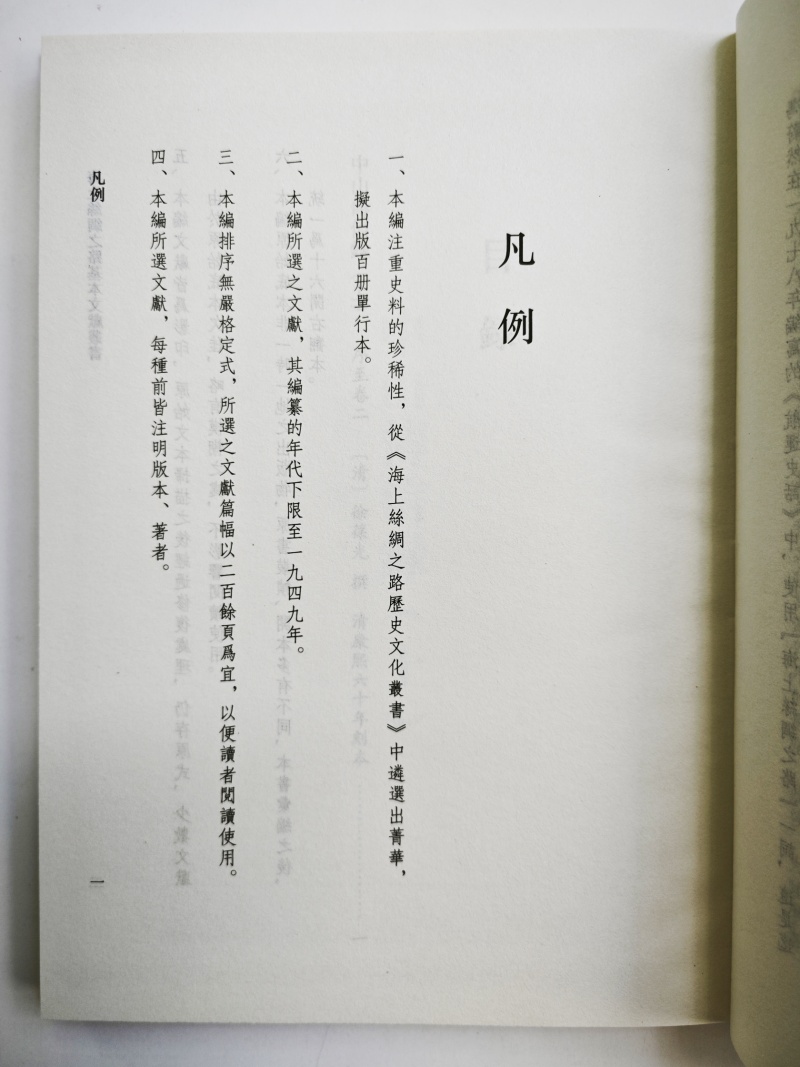 凡例
一、本編注重史料的珍稀性，從《海上絲綢之路歷史文化叢書》中遴選出菁華，
擬出版百册單行本。
二、本編所選之文獻，其編纂的年代下限至一九四九年。
三、本編排序無嚴格定式，所選之文獻篇幅以二百餘頁爲宜，以便讀者閱讀使用。
四、本編所選文獻，每種前皆注明版本、著者。
凡例
一